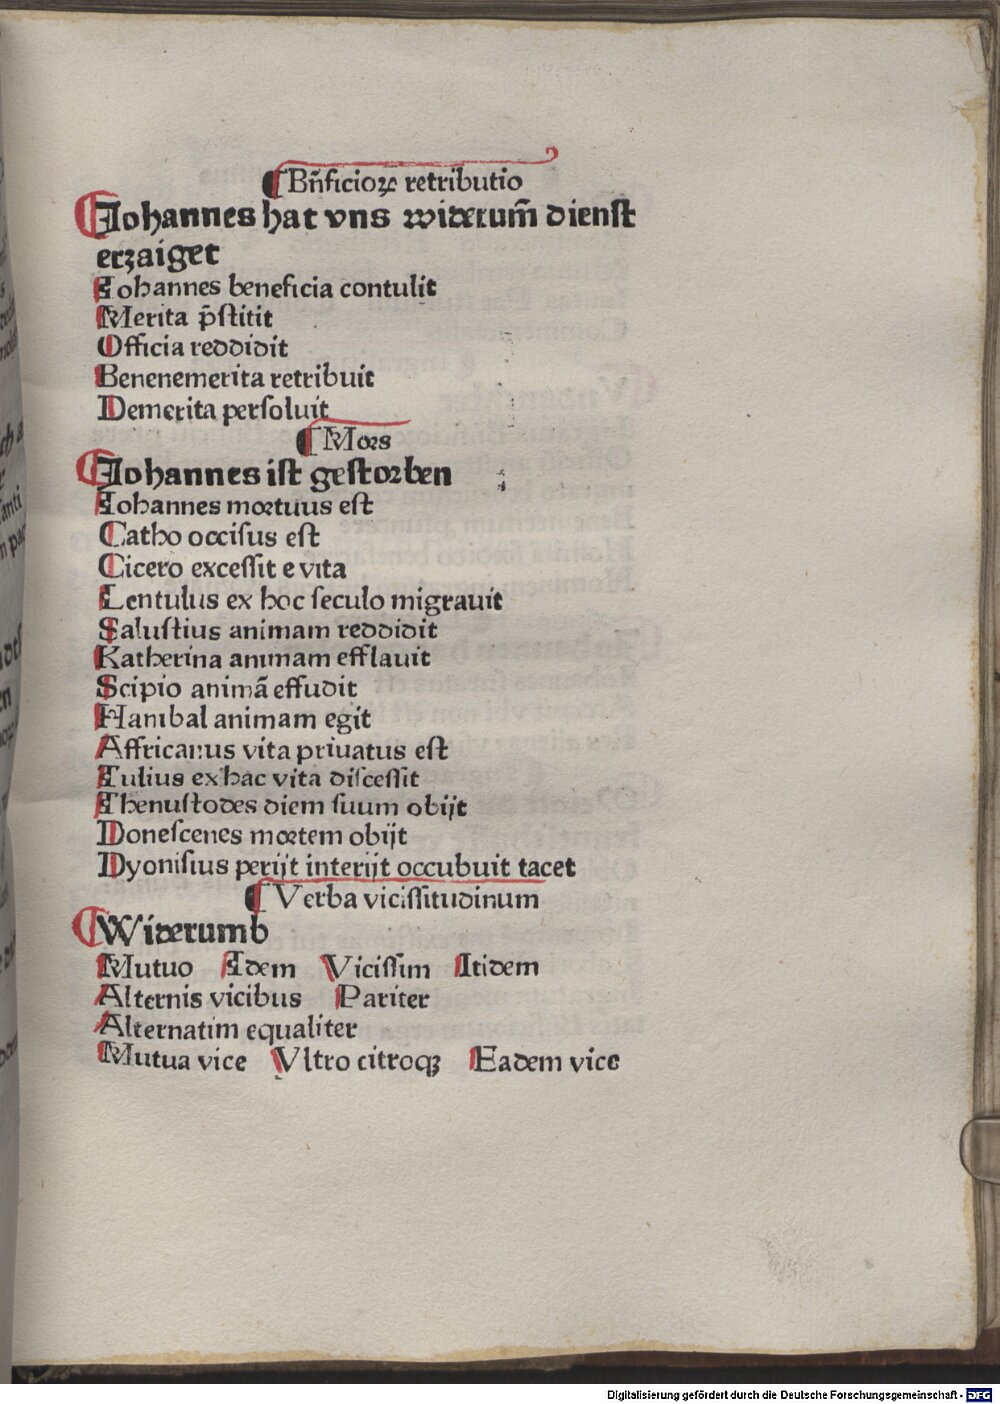 ¶ Bn̄ficioꝝ retributio
Johannes hat vns widerum̄ dienst
erzaiget
Iohannes beneficia contulit
Merita p̄stitit
Officia reddidit
Benenemerita retribuit
Demerita persoluit
¶ Mors
Johannes ist gestorben
Iohannes mortuus est
Catho occisus est
Cicero excessit e vita
Lentulus ex hoc seculo migrauit
Salustius animam reddidit
Katherina animam efflauit
Scipio animā effudit
Hanibal animam egit
Affricanus vita priuatus est
Tulius ex hac vita discessit
Thenustodes diem suum obijt
Donescenes mortem obijt
Dyonisius perijt interijt occubuit tacet
¶ Verba vicissitudinum
Widerumb
Mutuo Idem Vicissim Itidem
Alternis vicibus Pariter
Alternatim equaliter
Mutua vice Vltro citroqꝫ Eadem vice
Digitalisierung gefördert durch die Deutsche Forschungsgemeinschaft - DFG